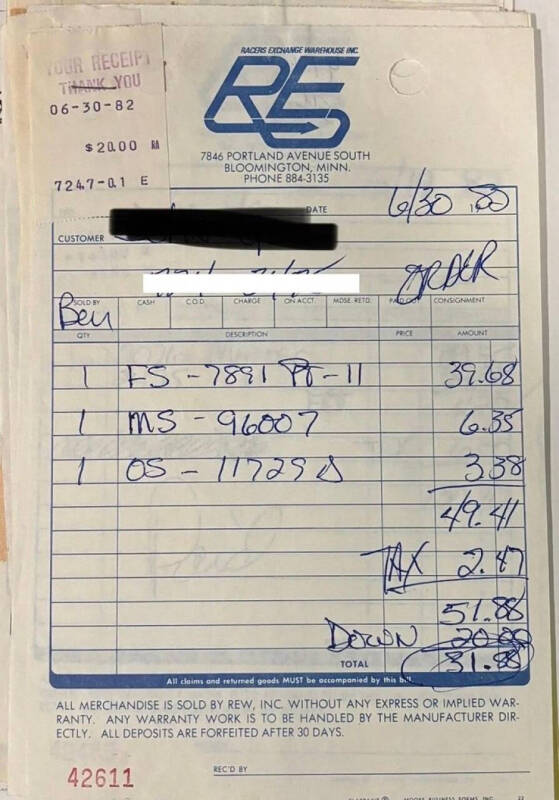 YOUR RECEIPT
THANK YOU
06-30-82
$20.00 RA
7247-0.1 E
RACERS EXCHANGE WAREHOUSE INC.
RE
7846 PORTLAND AVENUE SOUTH
BLOOMINGTON, MINN.
PHONE 884-3135
DATE 6/30 19
CUSTOMER
ORDER
SOLD BY CASH C.O.D. CHARGE ON ACCT. MDSE. RETD. PAID OUT CONSIGNMENT
Ben
QTY DESCRIPTION PRICE AMOUNT
1 FS - 7891 PT-11 39.68
1 MS - 96007 6.35
1 OS - 11729 3.38
49.41
TAX 2.47
51.88
DOWN 20.00
TOTAL 31.88
All claims and returned goods MUST be accompanied by this bill.
ALL MERCHANDISE IS SOLD BY REW, INC. WITHOUT ANY EXPRESS OR IMPLIED WAR-
RANTY. ANY WARRANTY WORK IS TO BE HANDLED BY THE MANUFACTURER DIR-
ECTLY. ALL DEPOSITS ARE FORFEITED AFTER 30 DAYS.
42611
REC'D BY
MOORE BUSINESS FORMS, INC. 22